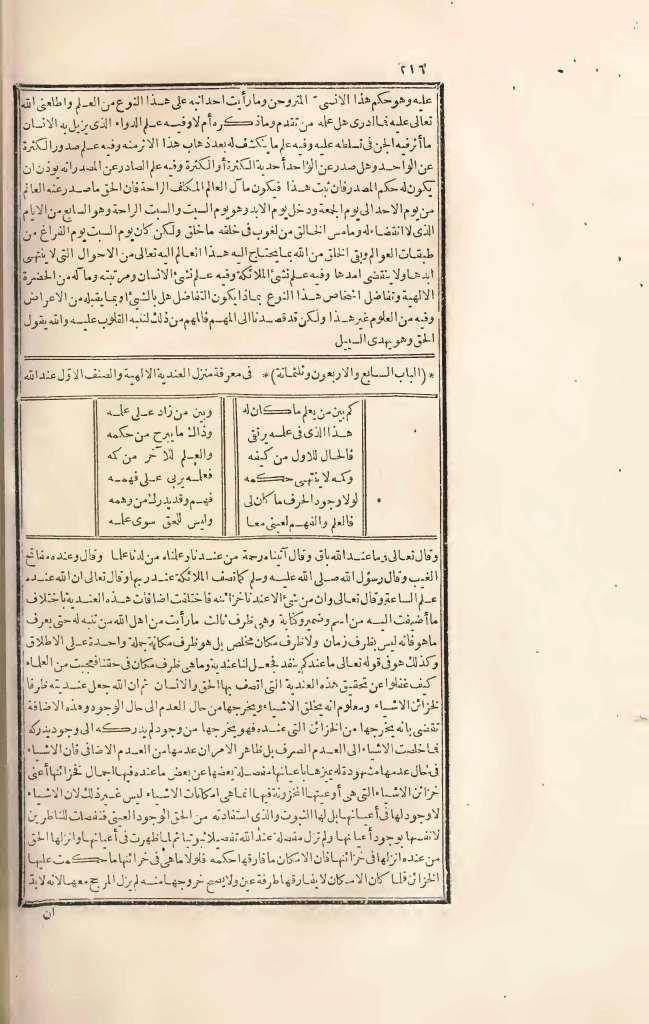 ٢١٦
عليه وهو حكم هذا الانسى المتروحن وما رأيت احدا نبه على هذا النوع من العلم واطلعنى الله
تعالى عليه فما ادرى هل علمه من تقدم وما ذكره أم لا وفيه علم الدواء الذى يزيل به الانسان
ما أثر فيه الجن فى تسلطه عليه وفيه علم ما يتكشف له بعد ذهاب هذا الاثر منه وفيه علم صدور الكثرة
عن الواحد وهل صدر عن الواحد أحدية الكثرة أو الكثرة وفيه علم الصادر عن المصدر انه يوذن ان
يكون له حكم المصدر فان ثبت هذا فيكون مآل العالم المكلف الراحة فان الحق ما صدر عنه العالم
من يوم الاحد الى يوم الجمعة ودخل يوم الابد وهو يوم السبت والسبت الراحة وهو السابع من الايام
الذى لا انقضاء له وما مس الخالق من لغوب فى خلقه ما خلق ولكن كان يوم السبت يوم الفراغ من
طبقات العوالم وبقى الخلق من الله بما يحتاج اليه هذا العالم اليه تعالى من الاحوال التى لا ينتهى
ابدها ولا ينقضى امدها وفيه علم نشئ الملائكة وفيه علم نشئ الانسان ومرتبته وماله من الحضرة
الالهية وتفاضل اشخاص هذا النوع بماذا يكون التفاضل هل بالنشئ او بما يقبله من الاعراض
وفيه من العلوم غير هذا ولكن قد قصدنا الى المهم فالمهم من ذلك لتنبه القلوب عليه والله يقول
الحق وهو يهدى السبيل
* (الباب السابع والاربعون وثلثمائة) * فى معرفة منزل العندية الالهية والصنف الاول عند الله
كم بين من يعلم ما كان له وبين من زاد على علمه
هذا الذى فى علمه يرتقى وذاك ما يبرح من حكمه
فالحال للاول من كيفه والعلم للآخر من كمه
وكمه لا ينتهى حكمه فعلمه يربى على فهمه
لولا وجود الحرف ما كان لى فهم وقد يدرك من وهمه
فالعلم والفهم لعينى معا وليس للحق سوى علمه
وقال تعالى وما عند الله باق وقال آتيناه رحمة من عندنا وعلمناه من لدنا علما وقال وعنده مفاتح
الغيب وقال رسول الله صلى الله عليه وسلم كما تصف الملائكة عند ربها وقال تعالى ان الله عنده
علم الساعة وقال تعالى وان من شئ الا عندنا خزائنه فاختلفت اضافات هذه العندية باختلاف
ما أضيفت اليه من اسم وضمير وكناية وهى ظرف ثالث ما رأيت من اهل الله من تنبه له حتى يعرف
ما هو فانه ليس بظرف زمان ولا ظرف مكان مخلص بل هو ظرف مكانة جملة واحدة على الاطلاق
وكذلك هو فى قوله تعالى ما عندكم ينفد فجعل لنا عندية وما هى ظرف مكان فى حقنا فعجبت من العلماء
كيف غفلوا عن تحقيق هذه العندية التى اتصف بها الحق والانسان ثم ان الله جعل عنديته ظرفا
لخزائن الاشياء ومعلوم انه يخلق الاشياء ويخرجها من حال العدم الى حال الوجود وهذه الاضافة
تقضى بانه يخرجها من الخزائن التى عنده فهو يخرجها من وجود لم يدركه الى وجود يدركه
فما خلصت الاشياء الى العدم الصرف بل ظاهر الامر ان عدمها من العدم الاضافى فان الاشياء
فى حال عدمها مشهودة له يميزها باعيانها مفصلة بعضها عن بعض ما عنده فيها اجمال فخزائنها أعنى
خزائن الاشياء التى هى أوعيتها المخزونة فيها انما هى امكانات الاشياء ليس غير ذلك لان الاشياء
لا وجود لها فى أعيانها بل لها الثبوت والذى استفادته من الحق الوجود العينى فتفصلت للناظرين
لانفسها بوجود أعيانها ولم تزل مفصلة عند الله تفصيلا ثبوتيا ثم لما ظهرت فى أعيانها وانزلها الحق
من عنده انزلها فى خزائنها فان الامكان ما فارقها حكمه فلولا ما هى فى خزائنها ما حكمت عليها
الخزائن فلما كان الامكان لا يفارقها طرفة عين ولا يصح خروجها منه لم يزل المرجح معها لانه لابد
ان